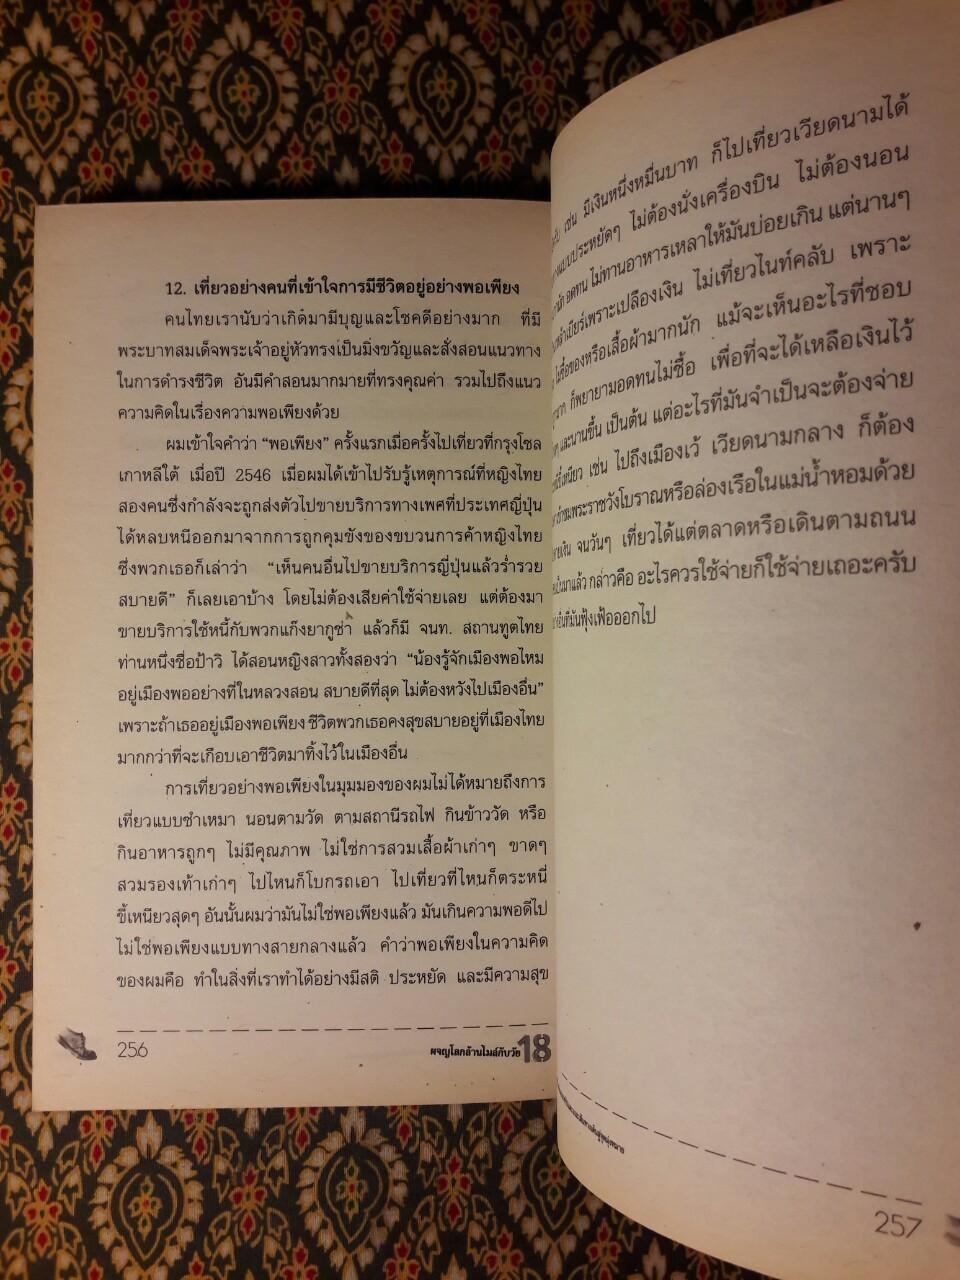 12. เที่ยวอย่างคนที่เข้าใจการมีชีวิตอยู่อย่างพอเพียง
คนไทยเรานับว่าเกิดมามีบุญและโชคดีอย่างมาก ที่มี
พระบาทสมเด็จพระเจ้าอยู่หัวทรงเป็นมิ่งขวัญและสั่งสอนแนวทาง
ในการดำรงชีวิต อันมีคำสอนมากมายที่ทรงคุณค่า รวมไปถึงแนว
ความคิดในเรื่องความพอเพียงด้วย
ผมเข้าใจคำว่า “พอเพียง” ครั้งแรกเมื่อครั้งไปเที่ยวที่กรุงโซล
เกาหลีใต้ เมื่อปี 2546 เมื่อผมได้เข้าไปรับรู้เหตุการณ์ที่หญิงไทย
สองคนซึ่งกำลังจะถูกส่งตัวไปขายบริการทางเพศที่ประเทศญี่ปุ่น
ได้หลบหนีออกมาจากการถูกคุมขังของขบวนการค้าหญิงไทย
ซึ่งพวกเธอก็เล่าว่า “เห็นคนอื่นไปขายบริการญี่ปุ่นแล้วร่ำรวย
สบายดี” ก็เลยเอาบ้าง โดยไม่ต้องเสียค่าใช้จ่ายเลย แต่ต้องมา
ขายบริการใช้หนี้กับพวกแก๊งยากูซ่า แล้วก็มี จนท. สถานทูตไทย
ท่านหนึ่งชื่อป้าวิ ได้สอนหญิงสาวทั้งสองว่า “น้องรู้จักเมืองพอไหม
อยู่เมืองพออย่างที่ในหลวงสอน สบายดีที่สุด ไม่ต้องหวังไปเมืองอื่น”
เพราะถ้าเธออยู่เมืองพอเพียง ชีวิตพวกเธอคงสุขสบายอยู่ที่เมืองไทย
มากกว่าที่จะเกือบเอาชีวิตมาทิ้งไว้ในเมืองอื่น
การเที่ยวอย่างพอเพียงในมุมมองของผมไม่ได้หมายถึงการ
เที่ยวแบบซำเหมา นอนตามวัด ตามสถานีรถไฟ กินข้าววัด หรือ
กินอาหารถูกๆ ไม่มีคุณภาพ ไม่ใช่การสวมเสื้อผ้าเก่าๆ ขาดๆ
สวมรองเท้าเก่าๆ ไปไหนก็โบกรถเอา ไปเที่ยวที่ไหนก็ตระหนี่
ขี้เหนียวสุดๆ อันนั้นผมว่ามันไม่ใช่พอเพียงแล้ว มันเกินความพอดีไป
ไม่ใช่พอเพียงแบบทางสายกลางแล้ว คำว่าพอเพียงในความคิด
ของผมคือ ทำในสิ่งที่เราทำได้อย่างมีสติ ประหยัด และมีความสุข
256
ผจญโลกล้านไมล์กับวัย 18
เช่น มีเงินหนึ่งหมื่นบาท ก็ไปเที่ยวเวียดนามได้
แบบประหยัดๆ ไม่ต้องนั่งเครื่องบิน ไม่ต้องนอน
อดทน ไม่ทานอาหารเหลาให้มันบ่อยเกิน แต่นานๆ
เพราะเปลืองเงิน ไม่เที่ยวไนท์คลับ เพราะ
ไม่ซื้อของหรือเสื้อผ้ามากนัก แม้จะเห็นอะไรที่ชอบ
ก็พยายามอดทนไม่ซื้อ เพื่อที่จะได้เหลือเงินไว้
และนานขึ้น เป็นต้น แต่อะไรที่มันจำเป็นจะต้องจ่าย
เช่น ไปถึงเมืองเว้ เวียดนามกลาง ก็ต้อง
ชมพระราชวังโบราณหรือล่องเรือในแม่น้ำหอมด้วย
จนวันๆ เที่ยวได้แต่ตลาดหรือเดินตามถนน
มาแล้ว กล่าวคือ อะไรควรใช้จ่ายก็ใช้จ่ายเถอะครับ
ที่มันฟุ้งเฟ้อออกไป
257